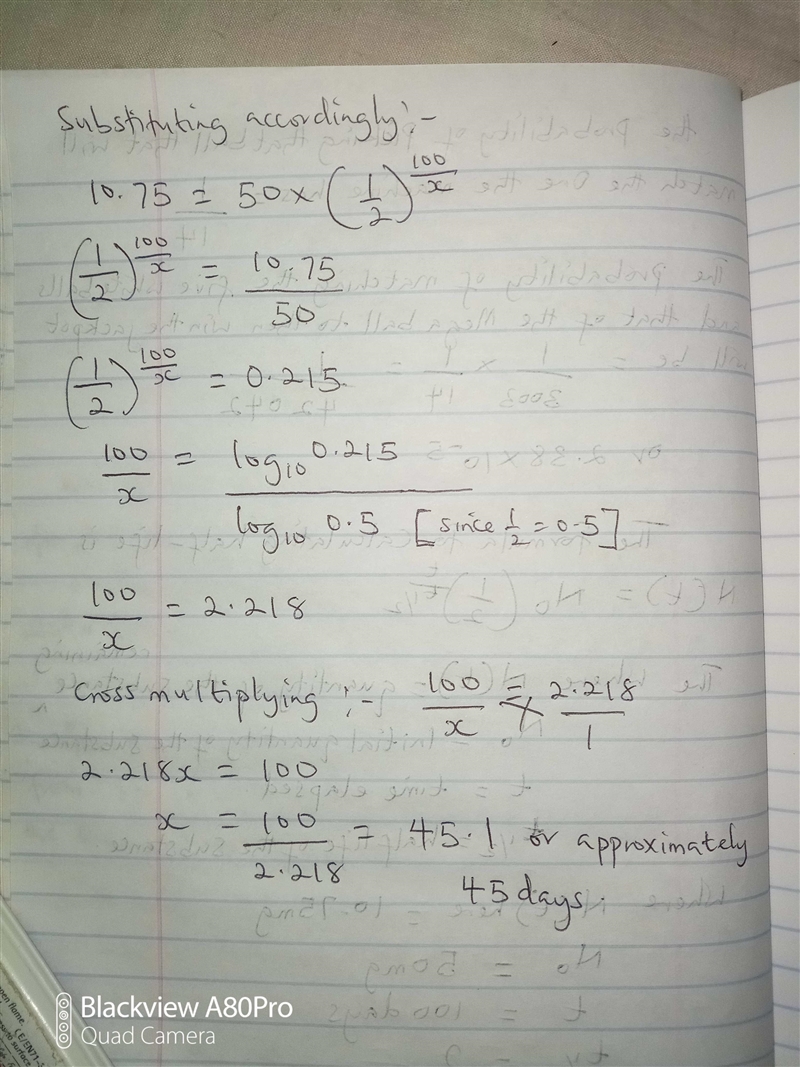 Substituting accordingly:-
10.75 = 50 × (1/2)^(100/x)
(1/2)^(100/x) = 10.75/50
(1/2)^(100/x) = 0.215
100/x = log₁₀ 0.215 / log₁₀ 0.5 [since 1/2 = 0.5]
100/x = 2.218
Cross multiplying :- 100/x = 2.218/1
2.218x = 100
x = 100/2.218 = 45.1 or approximately
45 days.
Blackview A80Pro
Quad Camera